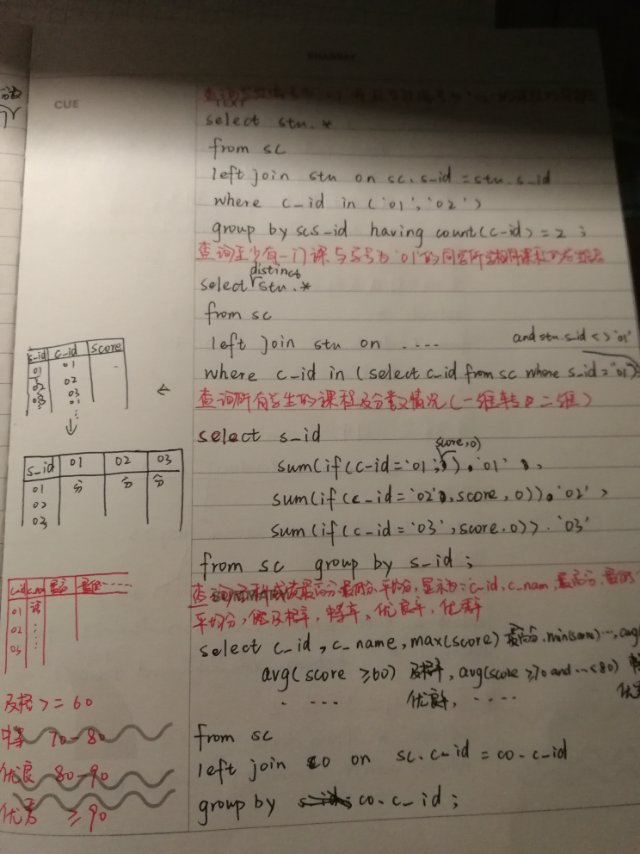 CUE
TEXT
select stu.*
from sc
left join stu on sc.s_id = stu.s_id
where c_id in ('01','02')
group by sc.s_id having count(c_id) = 2 ;
查询至少有一门课与学号为'01'的同学所学相同课程的
distinct
select stu.*
from sc
left join stu on ....
and stu.s_id <> '01'
where c_id in (select c_id from sc where s_id = '01')
查询所有学生的课程及分数情况(一维转二维)
select s_id
score,0)
sum(if(c-id = '01', '01'
sum(if(c-id = '02', score, 0)) '02'
sum(if(c-id = '03', score, 0)) '03'
from sc group by s_id ;
最高分,最低分,平均分,显示为: c_id, c_nam, 最高分,
平均分,及格率,中等率,优良率,优秀率
select c_id, c_name, max(score) 最高分, min(score)..., avg
avg(score ≥60) 及格率, avg(score ≥70 and ...<80)
.... 优良率, ....
from sc
left join co on sc.c_id = co.c_id
group by co.c_id ;
s_id c_id score
01 01
02 02
03 03
01
s_id 01 02 03
01 分 分 分
02
03
c_id c_nam 最高 最低 ......
01
02
03
及格 >= 60
中等 70-80
优良 80-90
优秀 ≥90